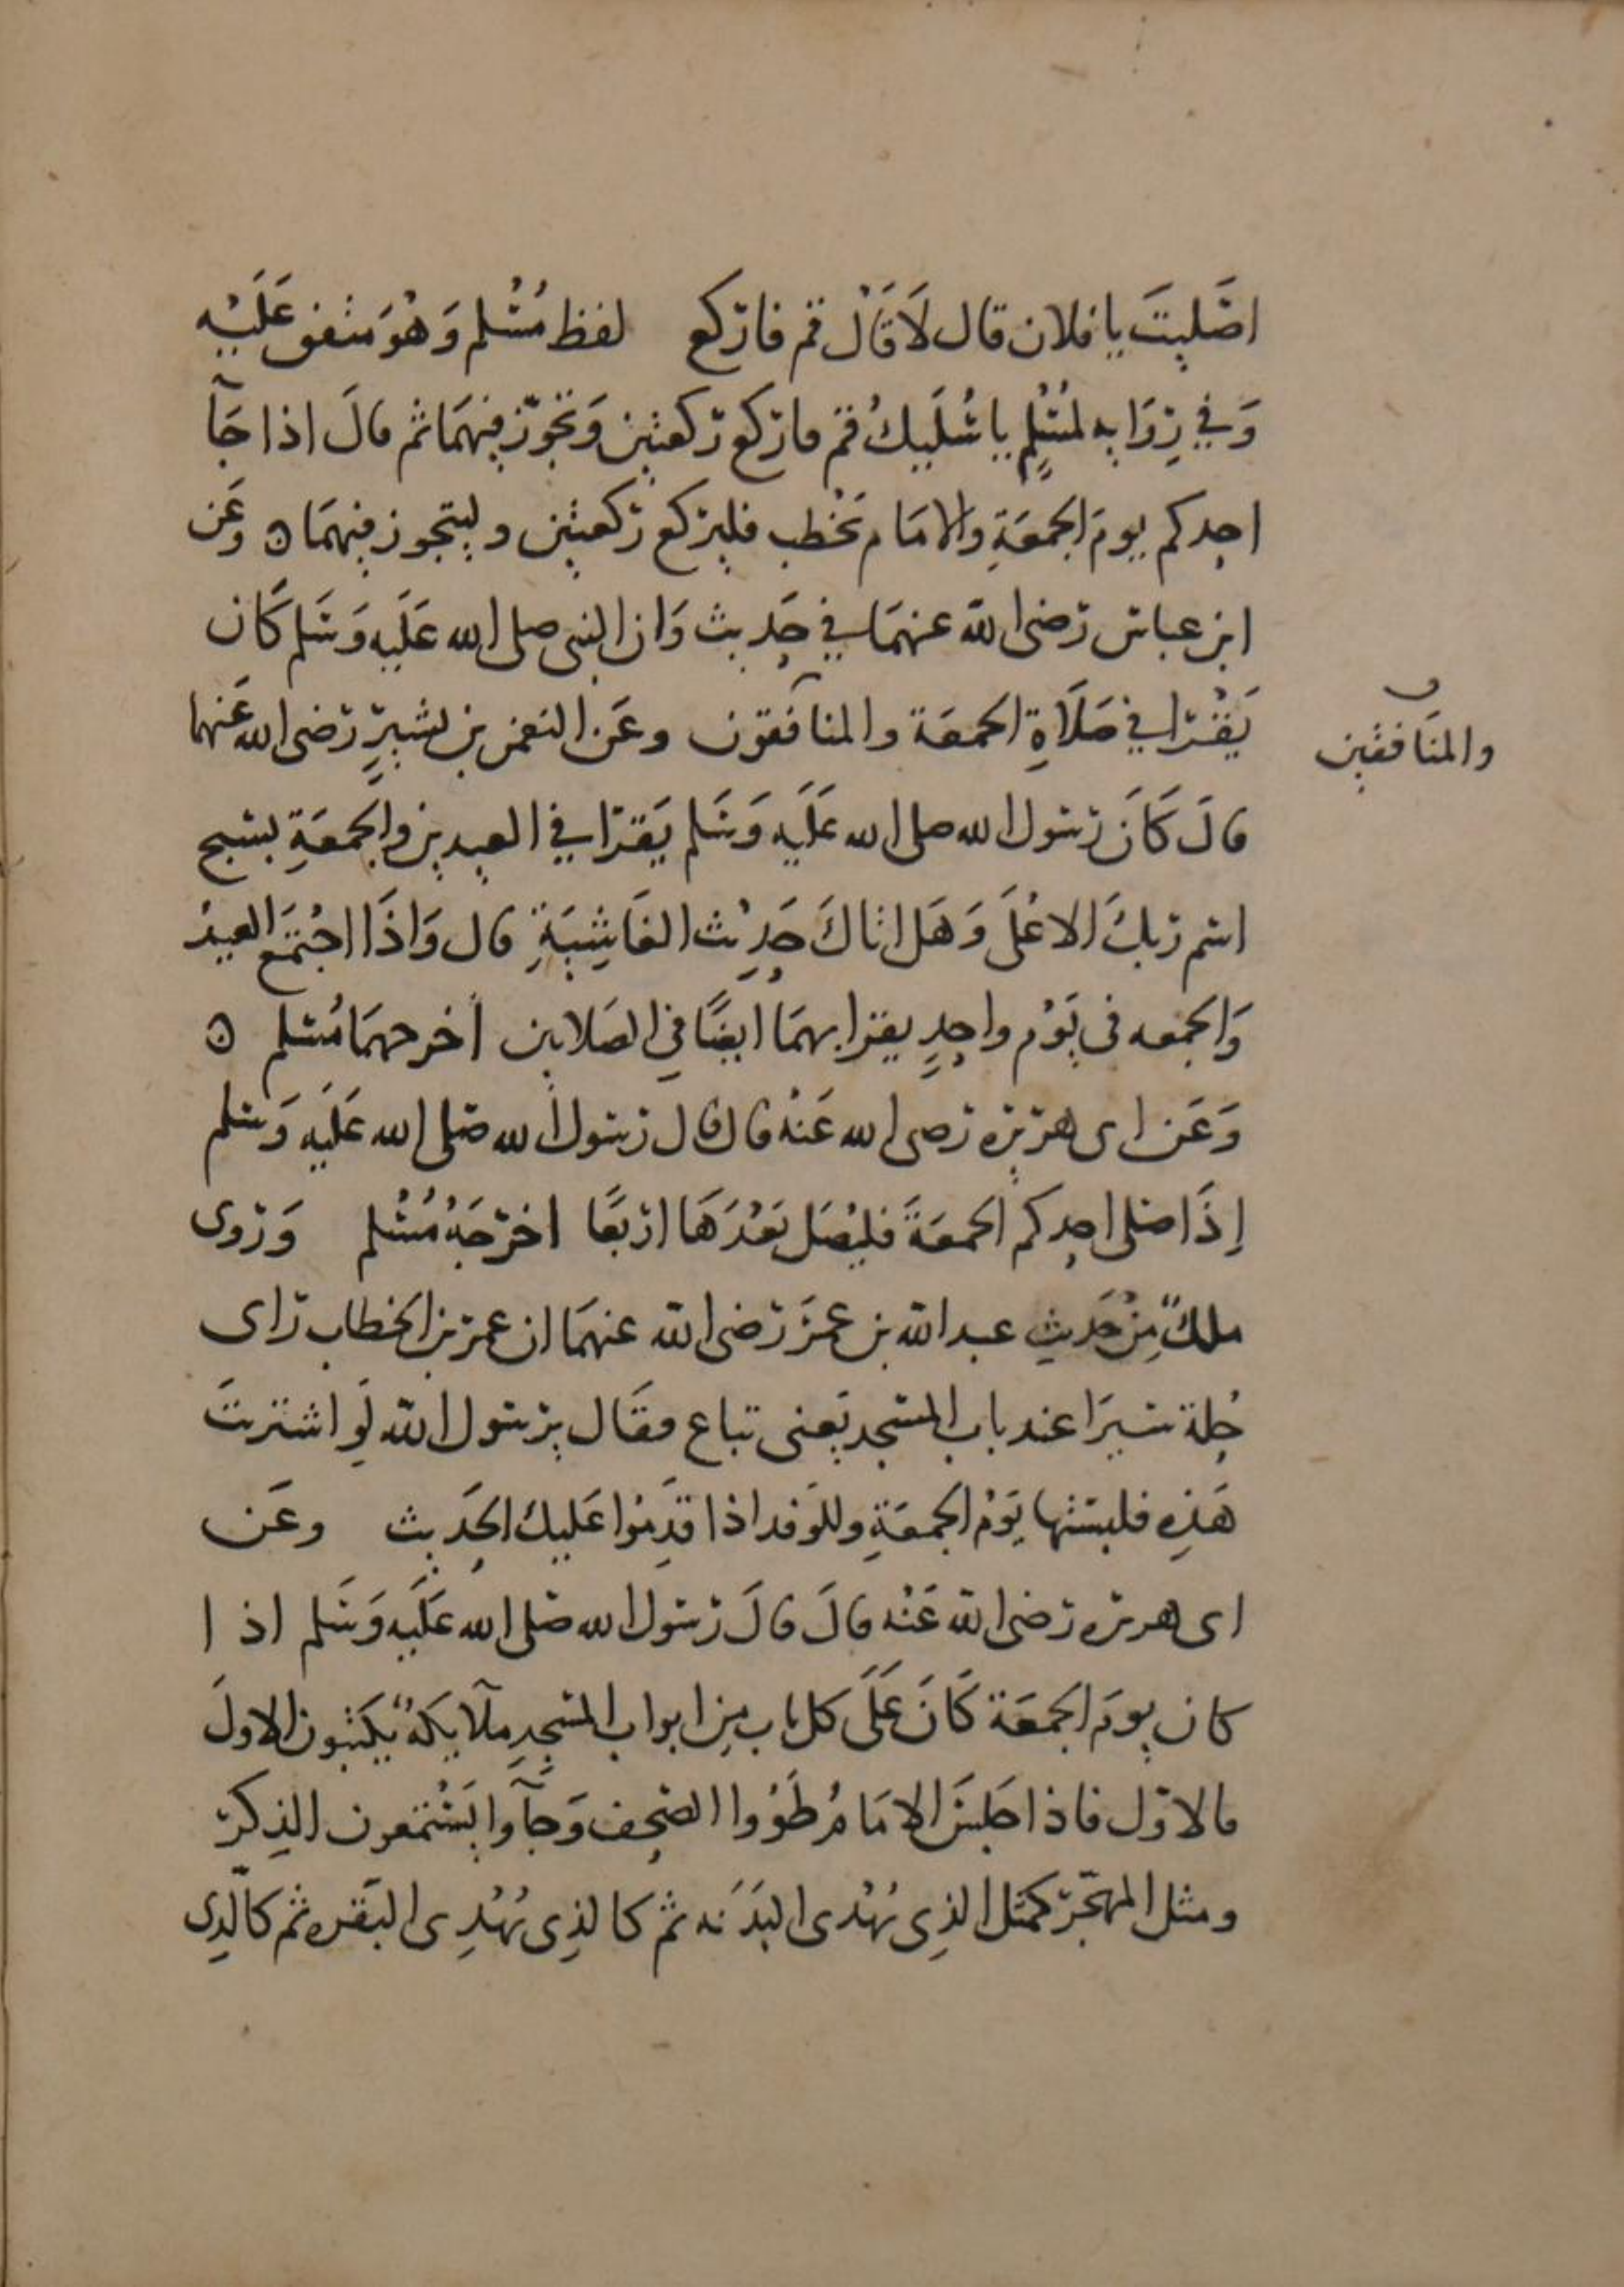 اصَليتَ يا فلان قال لَا قَالْ قم فاركع لفظ مُسْلم وَهُوَ متفق عَلَيْه
وَفي رِوَايه لمُسْلِمٍ يا سُلَيكُ قم فاركع ركعتين وَتجَوّز فيهمَا ثم قالَ اذا جَآ
احدكم يومَ الجمعَةِ والامَام يَخْطب فليركع ركعتين وليتجوز فيهمَا ه وعَن
ابن عباس رضى الله عنهمَا في حَديث وَان النبي صلى الله عَلَيه وَسَلم كَان
يَقْرَا في صَلَاةِ الجمعَة والمنافقون وعَن النعمن بن بشيرٍ رَضى الله عَنهما
والمنَافقين
قالَ كَانَ رَسول الله صلى الله عَلَيه وَسَلم يَقرَا في العيدين والجمعَةِ بسبح
اسم رَبكَ الاعْلَى وَهَل اتاكَ حَدِيْث الغَاشِيَةِ قال وَاذَا اجْتمَع العيدُ
وَالجمعه في يَوْم واحِدٍ يقرا بهمَا ايضًا في الصَلاتين أخرجهمَا مُسْلم ه
وَعَن ابى هريره رَضى الله عَنْهُ قال قال رَسول الله صَلى الله عَلَيه وَسَلم
إذَا صَلى احدكم الجمعَةَ فليُصَل بَعْدَهَا ارْبعًا اخرَجَهُ مُسْلم وَرَوى
ملكٌ مِنْ حَديثِ عبد الله بن عمَرَ رَضى الله عنهمَا ان عمر بن الخطاب رَاى
حُلة سيَرَا عند باب المسجد يَعنى تباع فقَال يرَسول الله لَو اشتريتَ
هَذِهِ فلبستها يَوْمَ الجمعَةِ وللوَفد اذا قدِمُوا عَليك الحَديث وعَن
ابى هريره رَضى الله عَنْه قالَ قالَ رَسول الله صَلى الله عَلَيه وَسَلم اذ ا
كان يومَ الجمعَة كَانَ عَلَى كل باب مِن ابواب المسجِدِ ملآيكَةٌ يكتبون الاولَ
فالاوّل فاذا جَلسَ الامَامُ طَوَوُا الصحف وَجآوا يَسْتمعون الذِكرَ
ومثل المهجّر كمثل الذِى يُهْدى البَدَنه ثم كالذِى يُهْدِى البَقره ثم كالّذِى